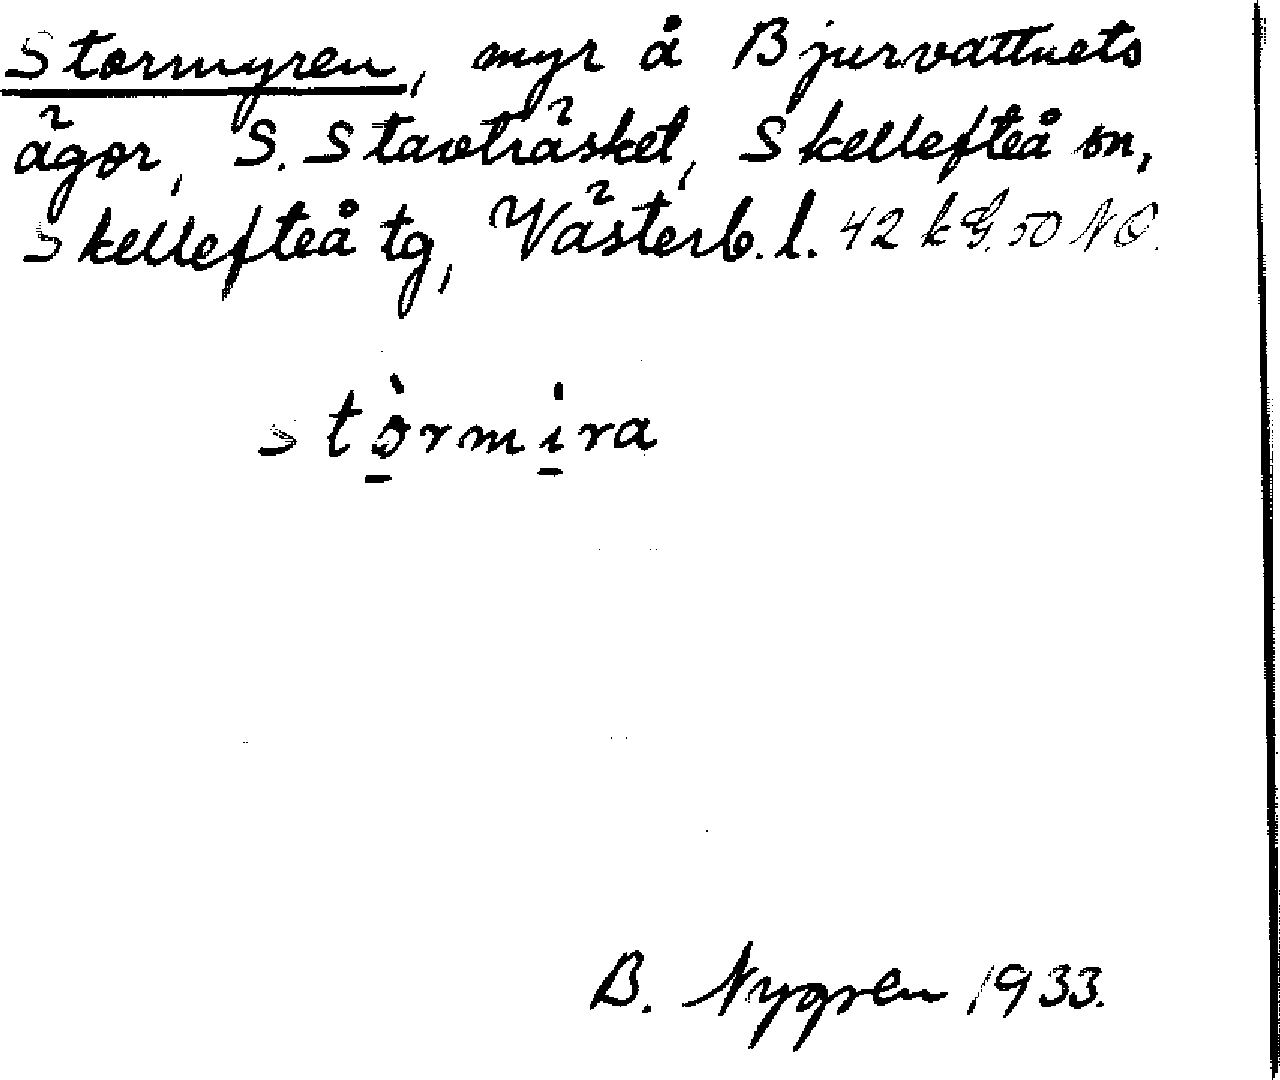 Stormyren, myr å Bjurvattnets
ägor, S. Stavträsket, Skellefteå sn,
Skellefteå tg, Västerb. l. 42 k G. 50 NO.
stòrmira
B. Nygren 1933.